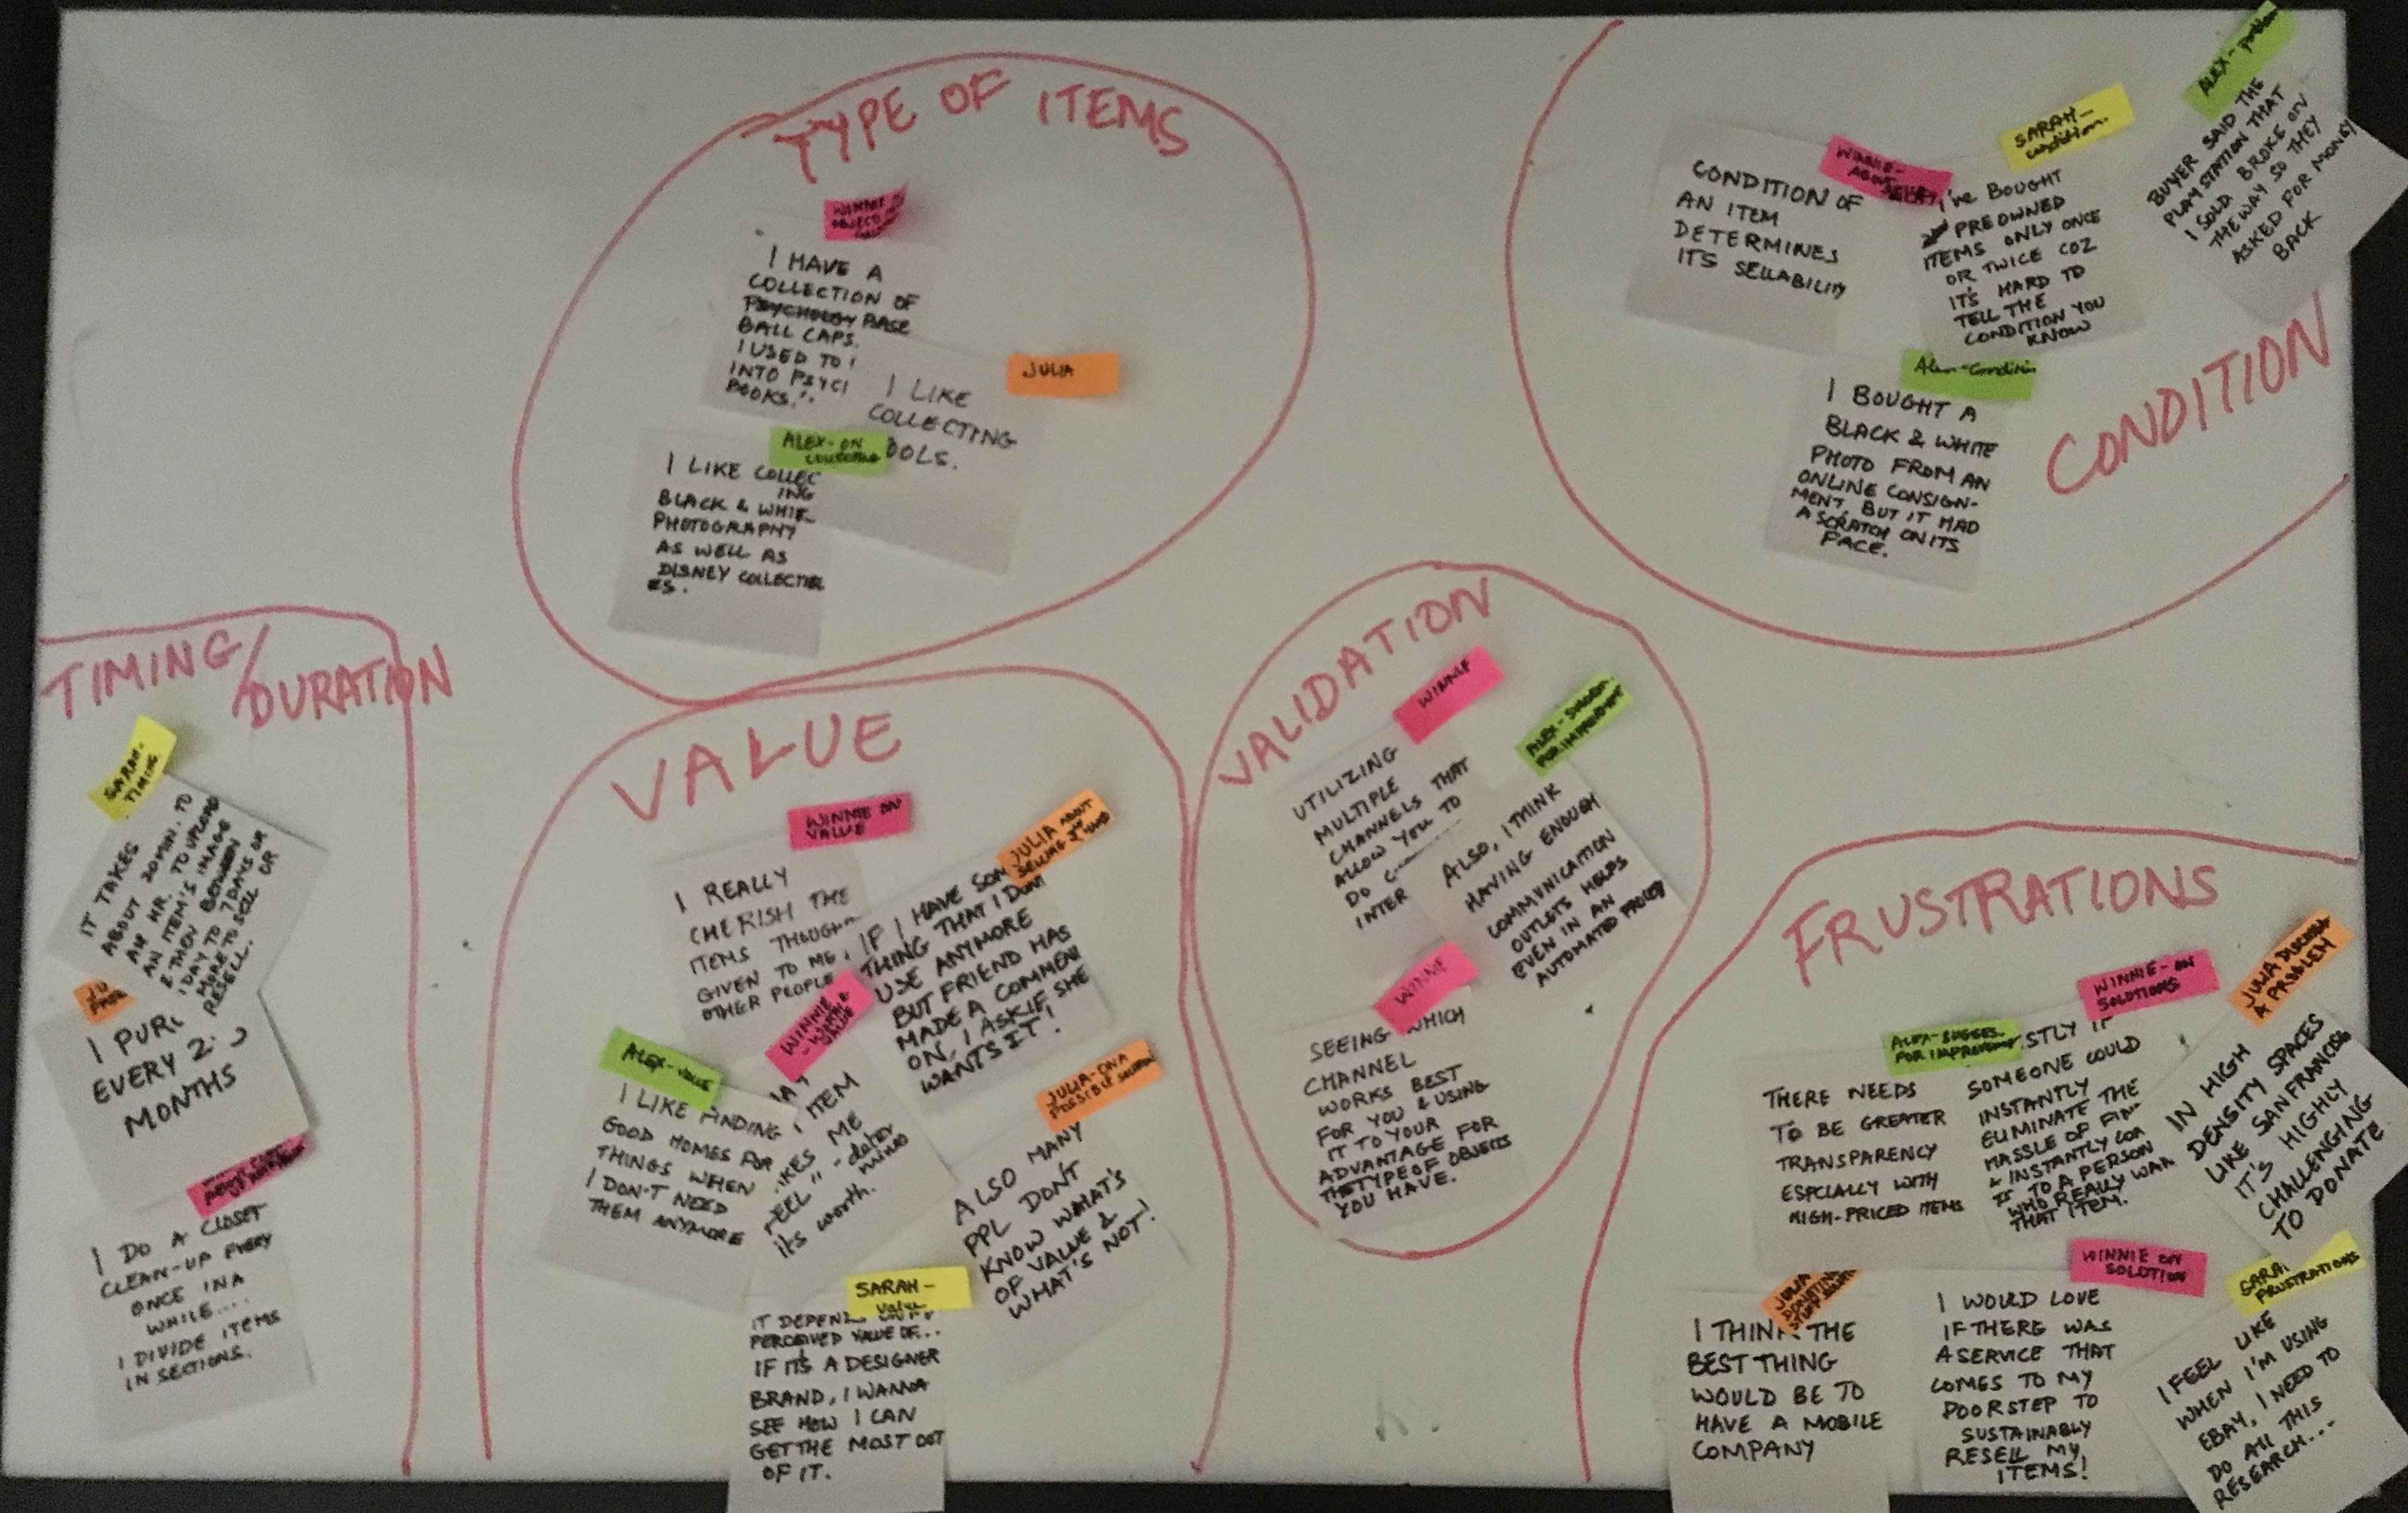 TYPE OF ITEMS
WINNIE
I HAVE A
COLLECTION OF
PSYCHOLOGY BASE
BALL CAPS.
I USED TO
INTO PSYC
BOOKS.
JULIA
I LIKE
COLLECTING
DOLS.
ALEX-ON
COLLECTING
I LIKE COLLEC
ING
BLACK & WHITE
PHOTOGRAPHY
AS WELL AS
DISNEY COLLECTIBL
ES.
CONDITION
WINNIE-
ABOUT
CONDITION OF
AN ITEM
DETERMINES
ITS SELLABILITY
SARAH-
condition.
I'VE BOUGHT
PREOWNED
ITEMS ONLY ONCE
OR TWICE COZ
IT'S HARD TO
TELL THE
CONDITION YOU
KNOW
ALEX-problem
BUYER SAID THE
PLAYSTATION THAT
I SOLD BROKE ON
THE WAY SO THEY
ASKED FOR MONEY
BACK
Alex-Condition
I BOUGHT A
BLACK & WHITE
PHOTO FROM AN
ONLINE CONSIGN-
MENT, BUT IT HAD
A SCRATCH ON ITS
FACE.
TIMING/
DURATION
SARAH-
TIMING
IT TAKES
ABOUT 20MIN. TO
AN HR. TO UPLOAD
AN ITEM'S IMAGE
& THEN BETWEEN
1 DAY TO 7 DAYS OR
MORE TO SELL OR
RESELL.
I PUR
EVERY 2-3
MONTHS
I DO A CLOSET
CLEAN-UP EVERY
ONCE IN A
WHILE....
I DIVIDE ITEMS
IN SECTIONS.
VALUE
WINNIE ON
VALUE
I REALLY
CHERISH THE
ITEMS THOUGH
GIVEN TO ME,
OTHER PEOPLE
JULIA ABOUT
SELLING 2ND HAND
IF I HAVE SOM
THING THAT I DON'T
USE ANYMORE
BUT FRIEND HAS
MADE A COMMENT
ON, I ASK IF SHE
WANTS IT!
WINNIE
- WORTH &
VALUE
WAY
ITEM
KES ME
FEEL" - deter
mines
its worth.
ALEX-VALUE
I LIKE FINDING
GOOD HOMES FOR
THINGS WHEN
I DON'T NEED
THEM ANYMORE
JULIA-ON A
POSSIBLE SOLUTION
ALSO MANY
PPL DON'T
KNOW WHAT'S
OF VALUE &
WHAT'S NOT!
SARAH-
Value
IT DEPEND
PERCEIVED VALUE OF...
IF IT'S A DESIGNER
BRAND, I WANNA
SEE HOW I CAN
GET THE MOST OUT
OF IT.
VALIDATION
WINNIE
UTILIZING
MULTIPLE
CHANNELS THAT
ALLOW YOU TO
DO
INTER
ALEX-SUGGES.
FOR IMPROVEMENT
ALSO, I THINK
HAVING ENOUGH
COMMUNICATION
OUTLETS HELPS
EVEN IN AN
AUTOMATED PROCESS
WINNIE
SEEING WHICH
CHANNEL
WORKS BEST
FOR YOU & USING
IT TO YOUR
ADVANTAGE FOR
THE TYPE OF OBJECTS
YOU HAVE.
FRUSTRATIONS
ALEX-SUGGES.
FOR IMPROVEMENT
THERE NEEDS
TO BE GREATER
TRANSPARENCY
ESPCIALLY WITH
HIGH-PRICED ITEMS
WINNIE-ON
SOLUTIONS
STLY IF
SOMEONE COULD
INSTANTLY
ELIMINATE THE
HASSLE OF FIN
& INSTANTLY
IT TO A PERSON
WHO REALLY WAN
THAT ITEM.
JULIA
A PROBLEM
IN HIGH
DENSITY SPACES
LIKE SAN FRANCISCO
IT'S HIGHLY
CHALLENGING
TO DONATE
JULIA
DONATING
STUFF
I THINK THE
BEST THING
WOULD BE TO
HAVE A MOBILE
COMPANY
WINNIE ON
SOLUTION
I WOULD LOVE
IF THERE WAS
A SERVICE THAT
COMES TO MY
DOORSTEP TO
SUSTAINABLY
RESELL MY
ITEMS!
SARA
FRUSTRATIONS
I FEEL LIKE
WHEN I'M USING
EBAY, I NEED TO
DO ALL THIS
RESEARCH...